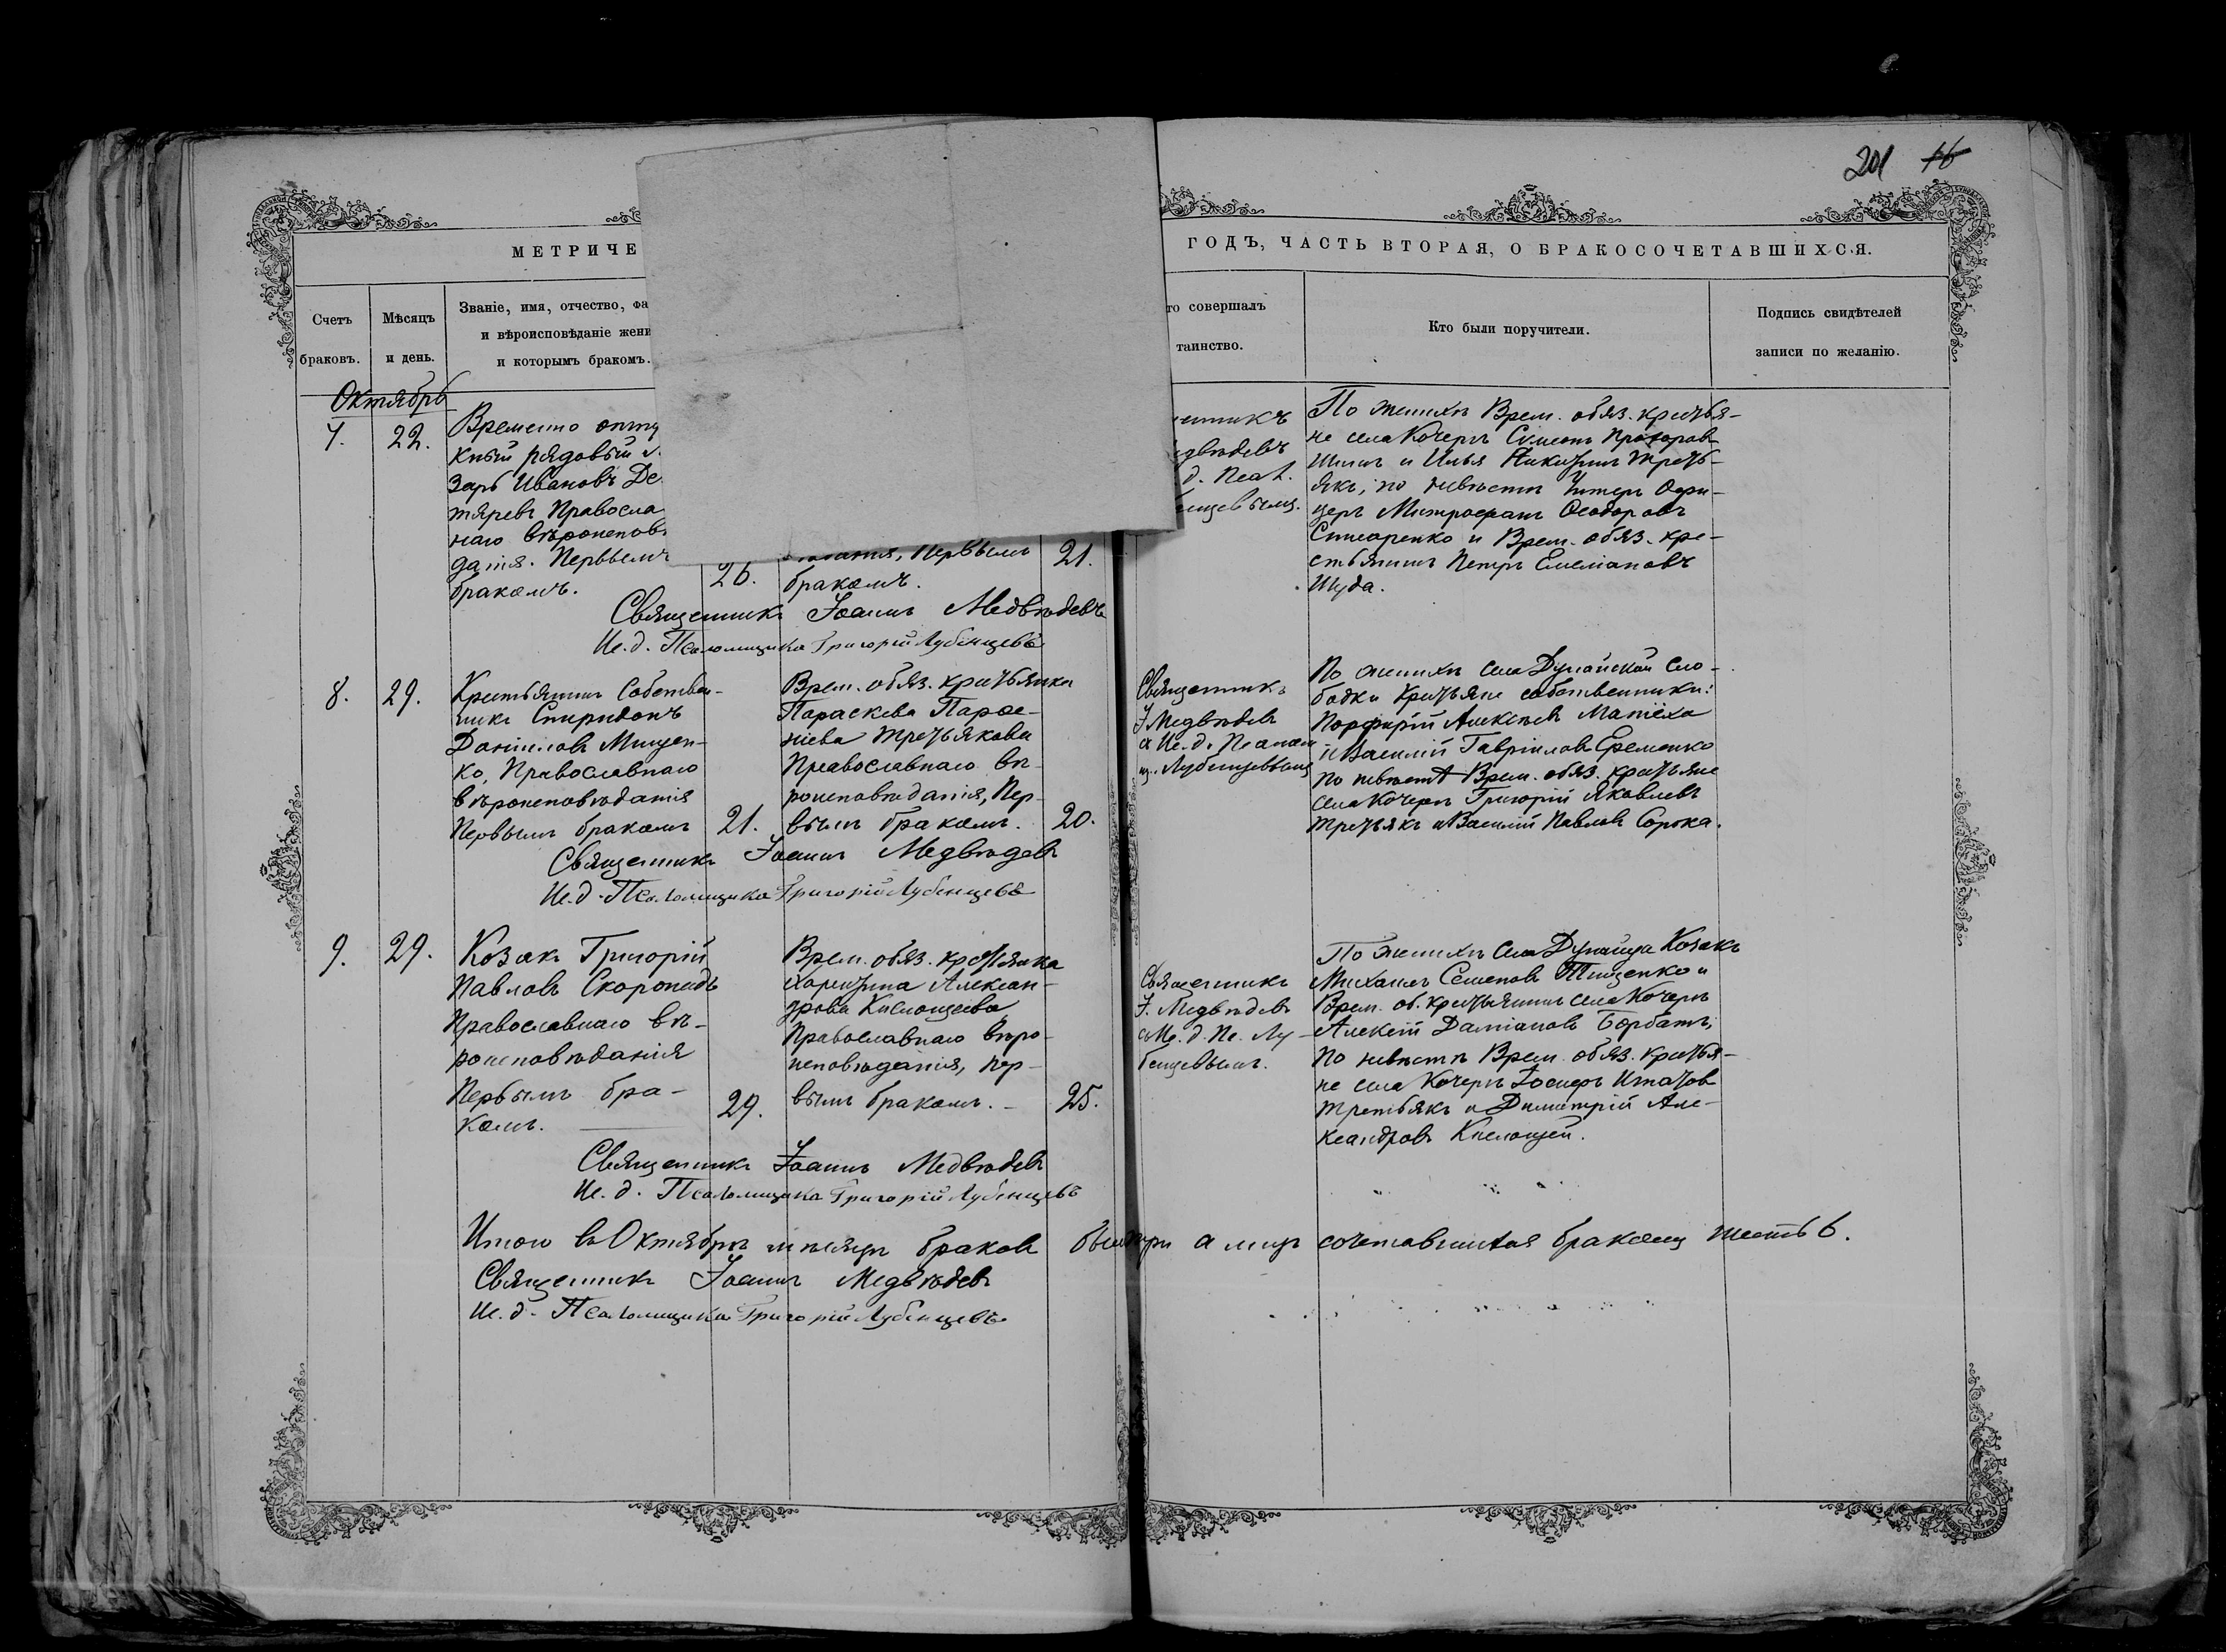 201 16
МЕТРИЧЕ
ГОДЪ, ЧАСТЬ ВТОРАЯ, О БРАКОСОЧЕТАВШИХСЯ.
Счетъ
браковъ.
Мѣсяцъ
и день.
Званіе, имя, отчество, фа
и вѣроисповѣданіе жени
и которымъ бракомъ.
то совершалъ
таинство.
Кто были поручители.
Подпись свидѣтелей
записи по желанію.
Октябрь
7.
22.
Временно отпу
кный рядовый
зарь Ивановъ Де
тяревъ Правосла
наго вѣроисповѣ
данія. Первымъ
бракомъ.
26.
Первымъ
бракомъ.
21.
едвѣдевъ
По женихѣ Врем. обяз. крестья-
не села Кочеръ
Илья
якъ, по невѣстѣ Унтеръ Офи-
церъ Митрофанъ Ѳеодоровъ
и Врем. обяз. кре-
стьянинъ Петръ Емеліановъ
Шуда.
Священникъ Іоаннъ Медвѣдевъ
Ис. д. Псаломщика Григорій Лубенцевъ
8.
29.
Крестьянинъ Собствен-
никъ Спиридонъ
Даніиловъ Мищен-
ко, Православнаго
вѣроисповѣданія
Первымъ бракомъ
21.
Врем. обяз. крестьянка
Параскева Парѳе-
ніева Третьякова
Православнаго вѣ-
роисповѣданія, Пер-
вымъ бракомъ.
20.
Священникъ
І Медвѣдевъ
съ Ис. д. Псалом
щ. Лубенцевымъ
По женихѣ села Дунайской Сло-
бодки крестьяне собственники:
Порфирій Алексѣевъ Матіеха
и Василій Гавріиловъ Еременко
по невѣстѣ Врем. обяз. крестьяне
села Кочеръ Григорій Яковлевъ
Третьякъ и Василій Павловъ Сорока.
Священникъ Іоаннъ Медвѣдевъ
Ис. д. Псаломщика Григорій Лубенцевъ
9.
29.
Козакъ Григорій
Павловъ Скоропадъ
Православнаго вѣ-
роисповѣданія
Первымъ бра-
комъ.
29.
Врем. обяз. крестьянка
Харитина Алексан-
дрова
Православнаго вѣро-
исповѣданія, пер-
вымъ бракомъ.
25.
Священникъ
І. Медвѣдевъ
съ Ис. д. Пс. Лу-
бенцевымъ.
По женихѣ села Дунайца Козакъ
Михаилъ Семеновъ Тищенко и
Врем. об. крестьянинъ села Кочеръ
Алексѣй Даміановъ Борбатъ,
по невѣстѣ Врем. обяз. крестья-
не села Кочеръ Іосифъ Игнатовъ
Третьякъ и Димитрій Але-
ксандровъ
Священникъ Іоаннъ Медвѣдевъ
Ис. д. Псаломщика Григорій Лубенцевъ
Итого въ Октябрѣ мѣсяцѣ браковъ было три а лицъ сочетавшихся бракомъ шесть 6.
Священникъ Іоаннъ Медвѣдевъ
Ис. д. Псаломщика Григорій Лубенцевъ